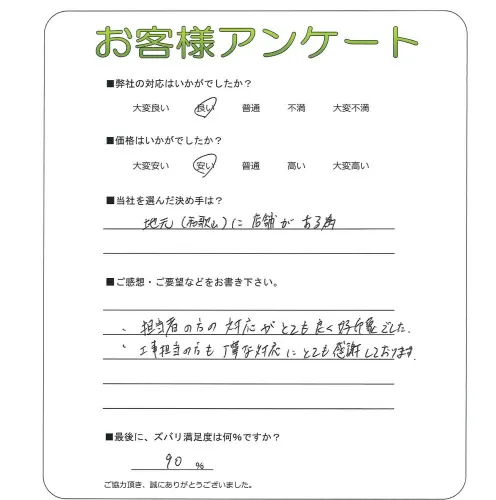 お客様アンケート
■弊社の対応はいかがでしたか？
大変良い 良い 普通 不満 大変不満
■価格はいかがでしたか？
大変安い 安い 普通 高い 大変高い
■当社を選んだ決め手は？
地元（和歌山）に店舗がある為
■ご感想・ご要望などをお書き下さい。
、担当者の方の対応がとても良く好印象でした。
、工事担当の方も丁寧な対応にとても感謝しております。
■最後に、ズバリ満足度は何%ですか？
90 %
ご協力頂き、誠にありがとうございました。